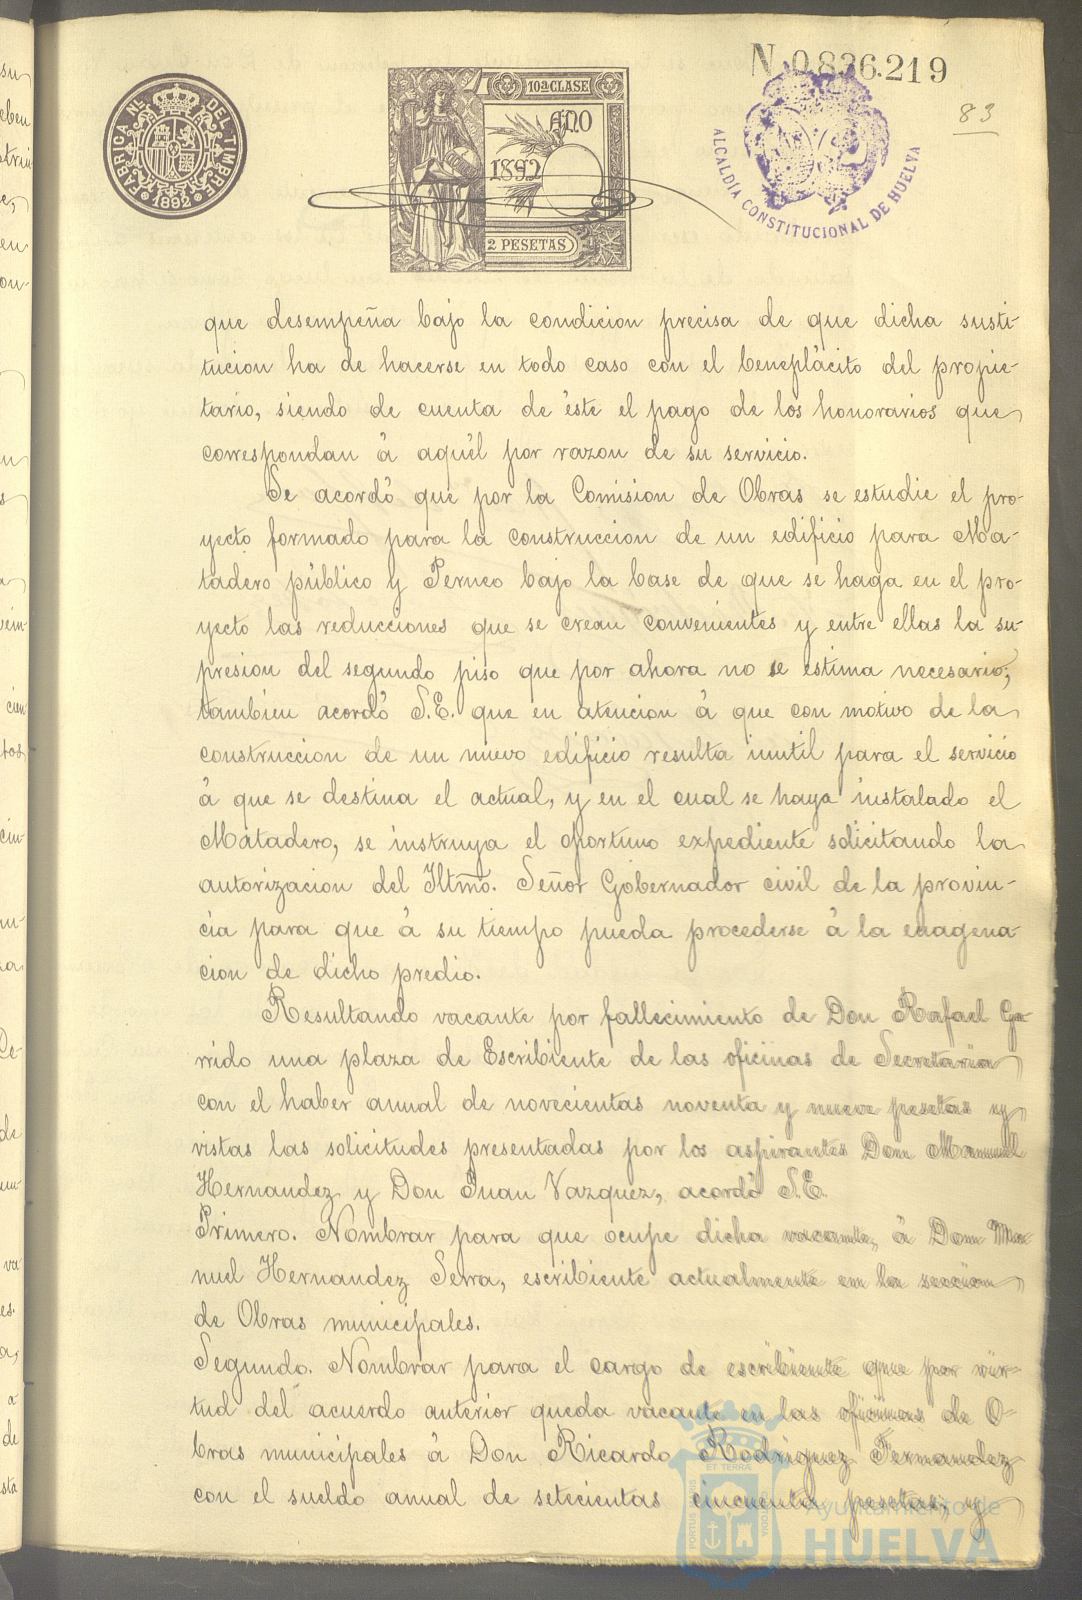 N. 0.836.219
83
FABRICA NL. DEL TIMBRE
1892
10ª CLASE
AÑO
1892
2 PESETAS
ALCALDÍA CONSTITUCIONAL DE HUELVA
que desempeña bajo la condicion precisa de que dicha susti-
tucion ha de hacerse en todo caso con el beneplácito del propie-
tario, siendo de cuenta de éste el pago de los honorarios que
correspondan á aquél por razon de su servicio.
Se acordó que por la Comision de Obras se estudie el pro-
yecto formado para la construccion de un edificio para Ma-
tadero público y Perneo bajo la base de que se haga en el pro-
yecto las reducciones que se crean convenientes y entre ellas la su-
presion del segundo piso que por ahora no se estima necesario;
tambien acordó S.E. que en atencion á que con motivo de la
construccion de un nuevo edificio resulta inutil para el servicio
á que se destina el actual, y en el cual se haya instalado el
Matadero, se instruya el oportuno expediente solicitando la
autorizacion del Iltmo. Señor Gobernador civil de la provin-
cia para que á su tiempo pueda procederse á la enagena-
cion de dicho predio.
Resultando vacante por fallecimiento de Don Rafael Ga-
rrido una plaza de Escribiente de las oficinas de Secretaria
con el haber anual de novecientas noventa y nueve pesetas y
vistas las solicitudes presentadas por los aspirantes Don Manuel
Hernandez y Don Juan Vazquez, acordó S.E.
Primero. Nombrar para que ocupe dicha vacante, á Don Ma-
nuel Hernandez Serra, escribiente actualmente en la seccion
de Obras municipales.
Segundo. Nombrar para el cargo de escribiente que por vir-
tud del acuerdo anterior queda vacante en las oficinas de O-
bras municipales á Don Ricardo Rodriguez Fernandez
con el sueldo anual de setecientas cincuenta pesetas; y
PORTUS MARIS ET TERRAE CUSTODIA
Ayuntamiento de
HUELVA